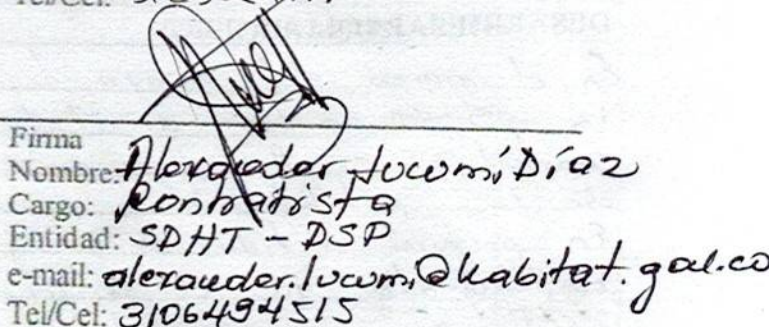 Tel/Cel:
Firma
Nombre: Alexander Lucumí Díaz
Cargo: Contratista
Entidad: SDHT - DSP
e-mail: alexander.lucumi@habitat.gov.co
Tel/Cel: 3106494515